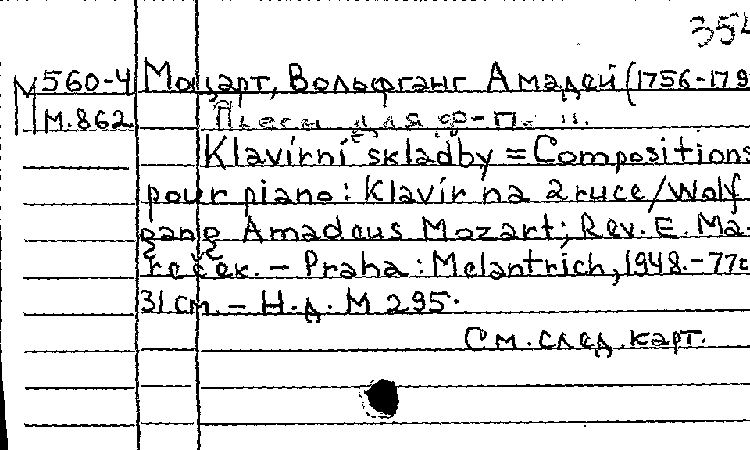 354
М 560-4 Моцарт, Вольфганг Амадей (1756-179
М.862 Пьесы для ф-п.
Klavírní skladby = Compositions
pour piano: Klavír na 2 ruce / Wolf
gang Amadeus Mozart; Rev. E. Ma-
řeček. – Praha: Melantrich, 1948. – 77с
31 см. – Н.д. М 295.
См. след. карт.